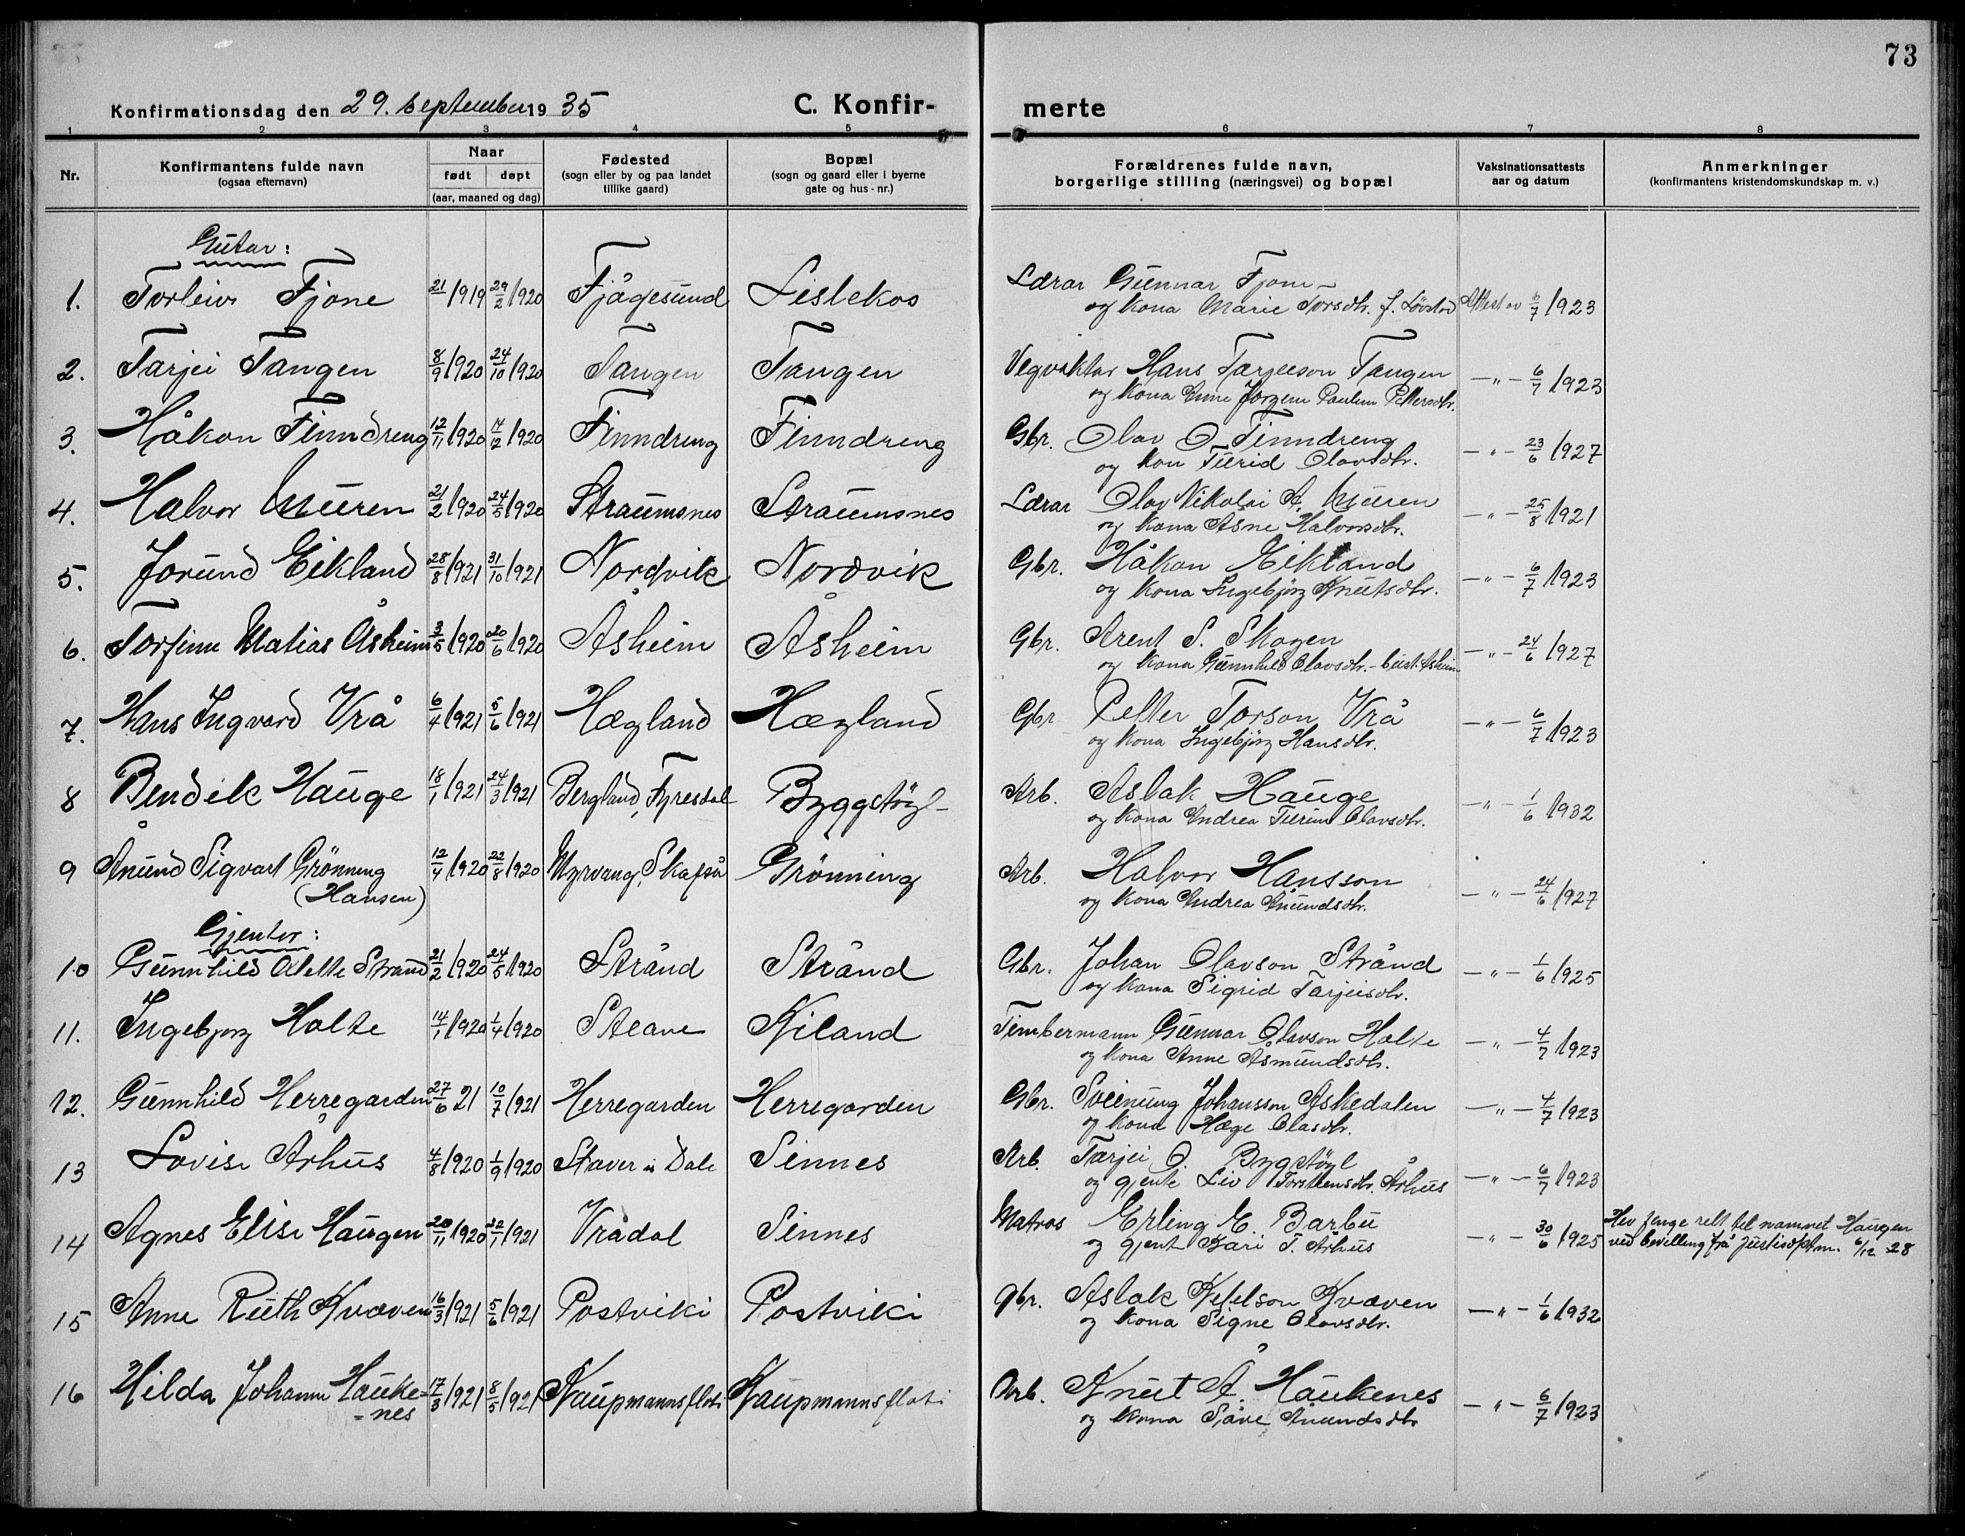 73
Konfirmationsdag den 29. september 1935 C. Konfir- merte
1 2 3 4 5 6 7 8
Nr. Konfirmantens fulde navn (ogsaa efternavn) Naar født døpt (aar, maaned og dag) Fødested (sogn eller by og paa landet tillike gaard) Bopæl (sogn og gaard eller i byerne gate og hus-nr.) Forældrenes fulde navn, borgerlige stilling (næringsvei) og bopæl Vaksinationsattests aar og datum Anmerkninger (konfirmantens kristendomskundskap m. v.)
Gutar:
1. Torleiv Fjone 1919 29/2 1920 Fjågesund Lislekos Lærar Gunnar Fjone
og kona Marie Torsdtr. f. Attest av 6/7 1923
2. Tarjei Tangen 8/9 1920 24/10 1920 Tangen Tangen Vegvaktar Hans Tarjeeson Tangen
og kona Anne Jørgine Pettersdtr. —"— 6/7 1923
3. Håkon Finndreng 12/11 1920 1920 Finndreng Finndreng Gbr. Olav O. Finndreng
og kon Turid Olavsdtr. —"— 23/6 1927
4. Halvor Muren 21/2 1920 24/5 1920 Straumsnes Straumsnes Lærar Olav Nikolai A. Muren
og kona Åsne Halvorsdtr. —"— 25/8 1921
5. Jorund Eikland 28/8 1921 31/10 1921 Nordvik Nordvik Gbr. Håkon Eikland
og kona Ingebjørg Knutsdtr. —"— 6/7 1923
6. Torfinn Matias Åsheim 3/5 1920 20/6 1920 Åsheim Åsheim Gbr. Arent S. Skogen
og kona Gunnhild Olavsdtr. - bust. Åsheim —"— 24/6 1927
7. Hans Ingvard Vrå 6/4 1921 5/6 1921 Hægland Hægland Gbr Petter Torson Vrå
og kona Ingebjørg Hansdtr. —"— 6/7 1923
8 Bendik Hauge 18/1 1921 24/3 1921 Bergland, Fyresdal Byggstøyl Arb. Aslak Hauge
og kona Andrea Turine Olavsdtr. —"— 1/6 1932
9 Ånund Sigvart Grönning (Hansen) 12/4 1920 22/8 1920 Myrvang, Skafså Grönning Arb. Halvor Hansson
og kona Andrea Ånundsdtr. —"— 24/6 1927
Gjentor:
10 Gunnhild Olette Strånd 21/2 1920 24/5 1920 Strånd Strånd Gbr. Johan Olavson Strånd
og kona Sigrid Tarjeisdtr. —"— 1/6 1925
11. Ingebjørg Holte 14/1 1920 1/4 1920 Kiland Timbermann Gunnar Olavson Holte
og kona Anne Åsmundsdtr. —"— 4/7 1923
12. Gunnhild Herregarden 27/6 21 10/7 1921 Herregarden Herregarden Gbr. Sveinung Johansson Askedalen
og kona Hæge Olasdtr. —"— 4/7 1923
13 Lovise Århus 4/8 1920 1/9 1920 Staver i Dale Sinnes Arb. Tarjei O. Bygstøyl
og gjente Liv Torsteinsdtr. Århus —"— 6/7 1923
14 Agnes Elise Haugen 20/11 1920 22/1 1921 Vrådal Sinnes Matros Erling E. Barbu
og gjent Kari T. Århus —"— 30/6 1925 Hev fenge rett til namnet Haugen
ved bevilling frå Justisdptm. 6/12 28
15 Anne Ruth Kvæven 16/3 1921 5/6 1921 Postviki Postviki gbr. Aslak Kjetelson Kvæven
og kona Signe Olavsdtr. —"— 1/6 1932
16 Hilda Johanne Hauke=
=nes 17/3 1921 8/5 1921 Kaupmannsfloti Kaupmannsfloti Arb. Knut Å. Haukenes
og kona Ånundsdtr —"— 6/7 1923